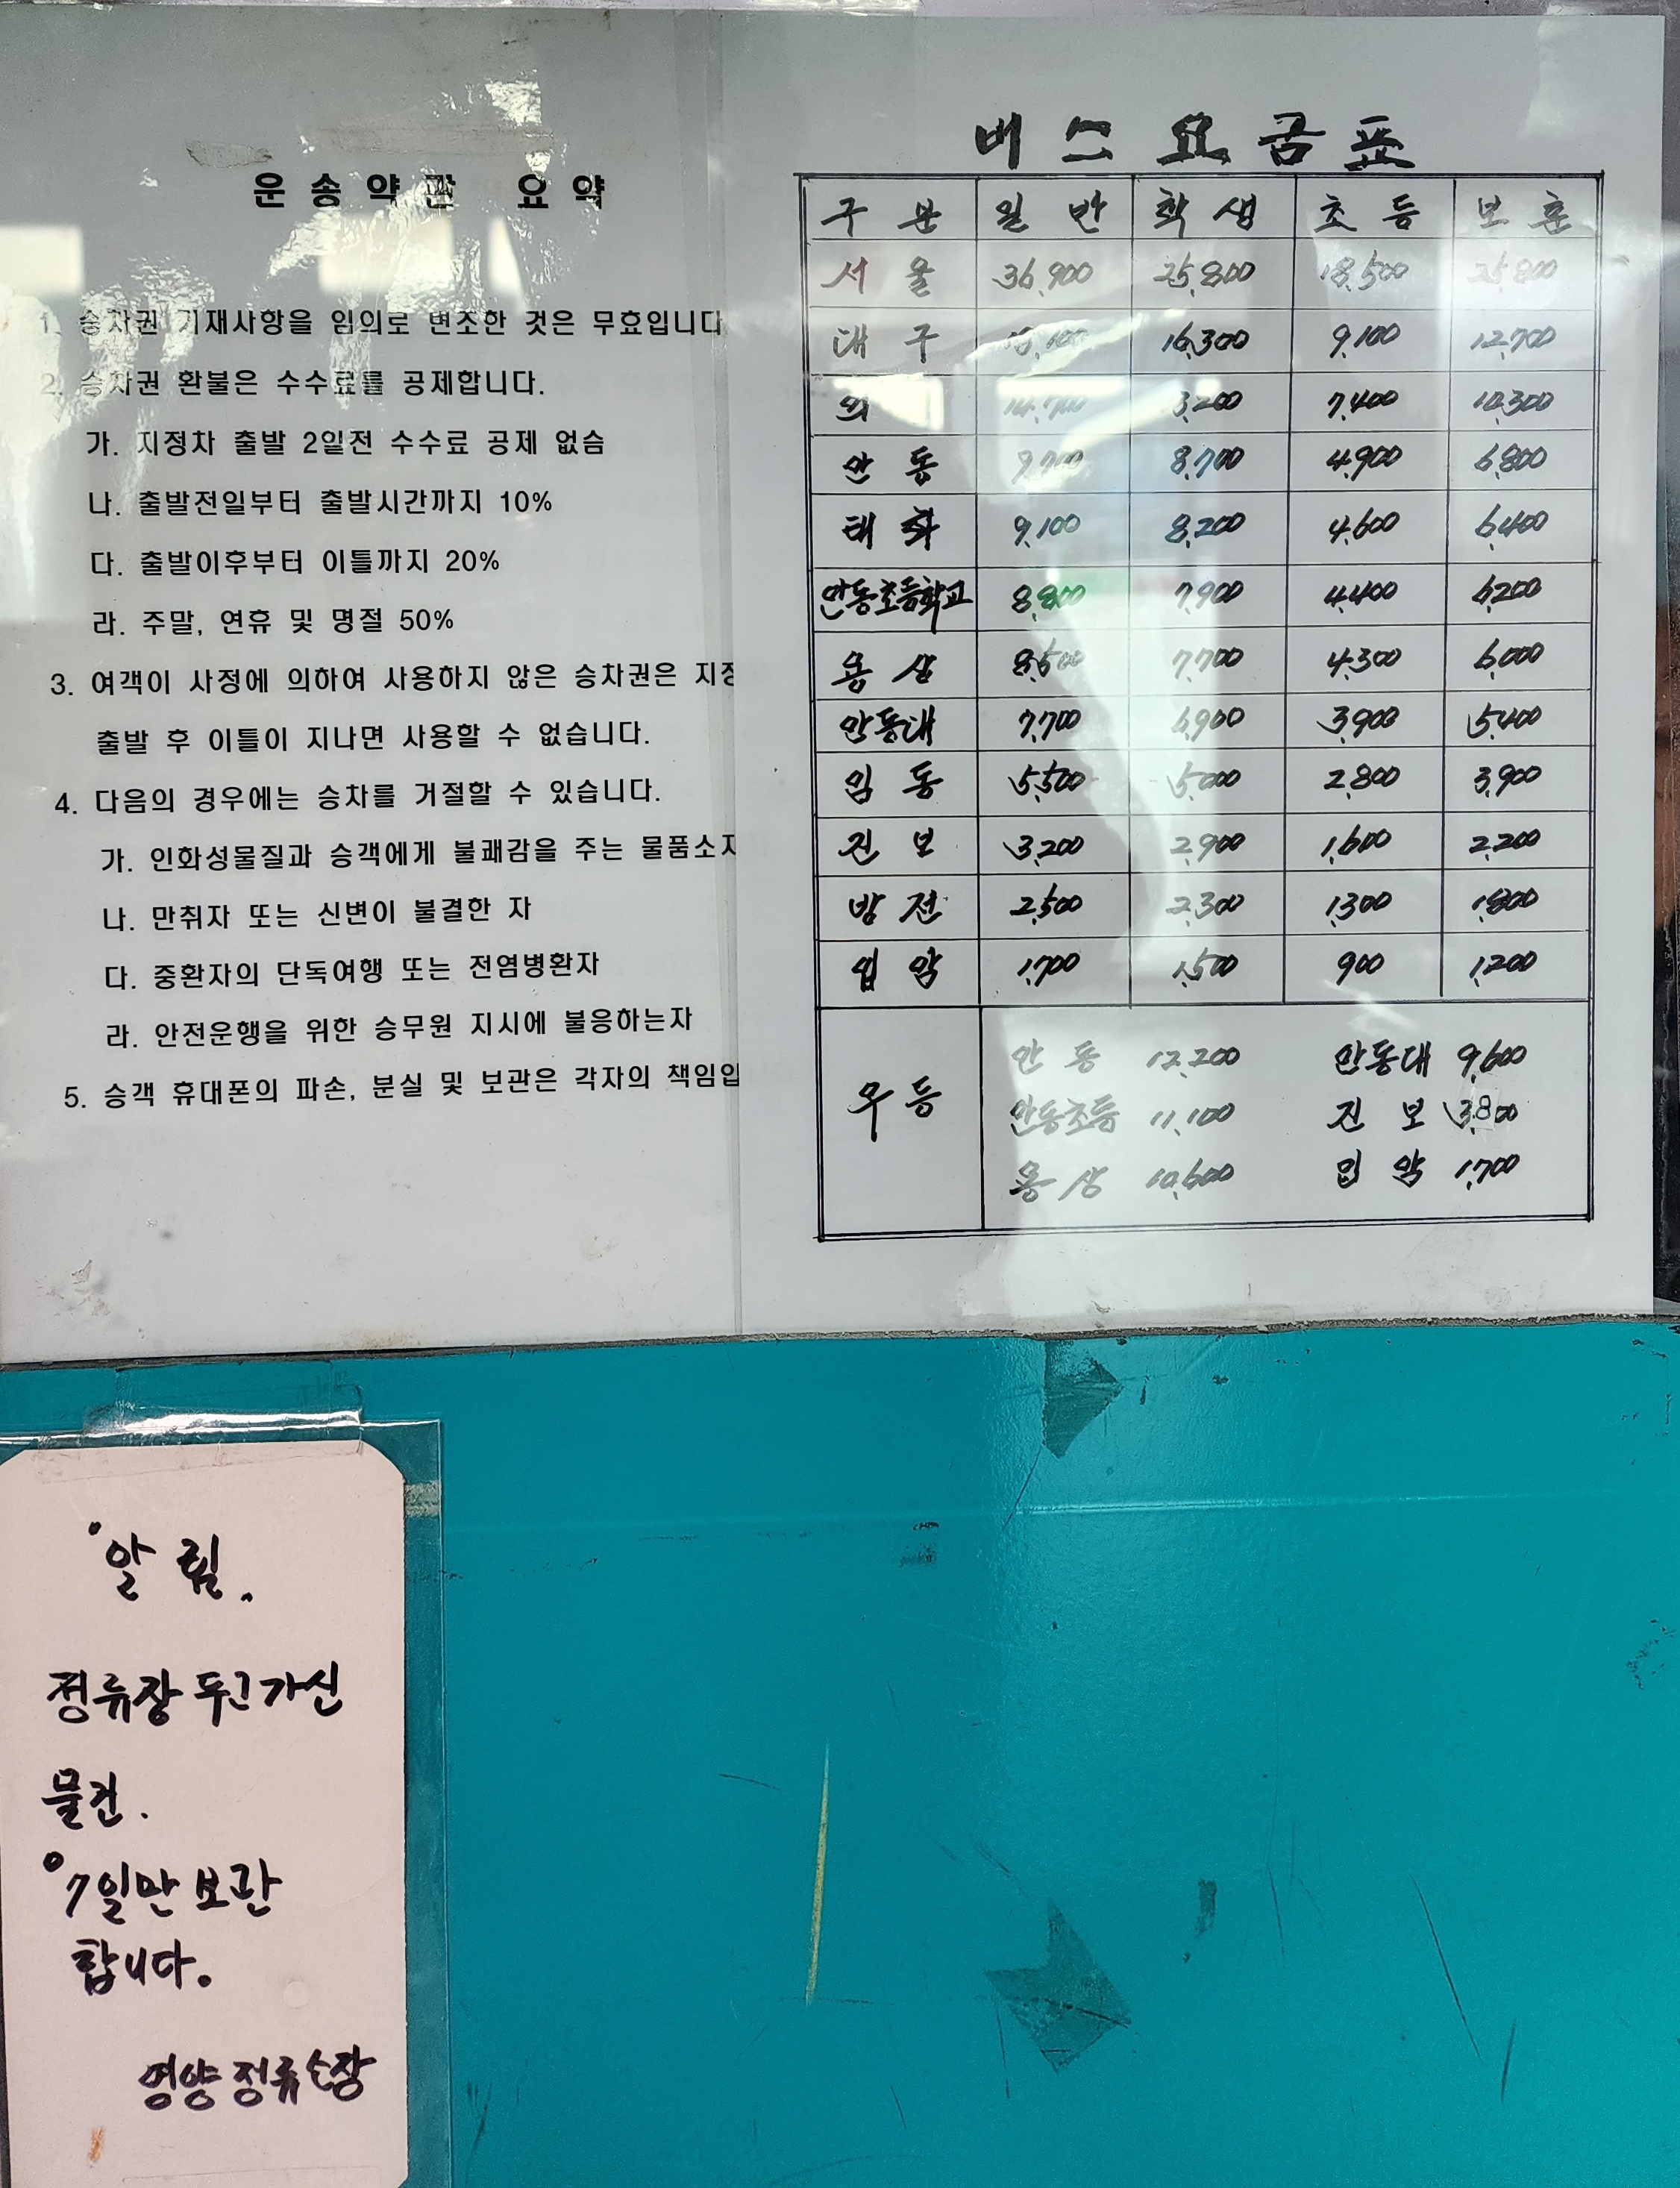 운송약관 요약
1. 승차권 기재사항을 임의로 변조한 것은 무효입니다
2. 승차권 환불은 수수료를 공제합니다.
가. 지정차 출발 2일전 수수료 공제 없슴
나. 출발전일부터 출발시간까지 10%
다. 출발이후부터 이틀까지 20%
라. 주말, 연휴 및 명절 50%
3. 여객이 사정에 의하여 사용하지 않은 승차권은 지정
출발 후 이틀이 지나면 사용할 수 없습니다.
4. 다음의 경우에는 승차를 거절할 수 있습니다.
가. 인화성물질과 승객에게 불쾌감을 주는 물품소지
나. 만취자 또는 신변이 불결한 자
다. 중환자의 단독여행 또는 전염병환자
라. 안전운행을 위한 승무원 지시에 불응하는자
5. 승객 휴대폰의 파손, 분실 및 보관은 각자의 책임입
버스요금표
구분 일반 학생 초등 보훈
서울 36,900 25,800 18,500 25,800
대구 18,100 16,300 9,100 12,700
의 14,700 3,200 7,400 10,300
안동 9,700 8,700 4,900 6,800
태화 9,100 8,200 4,600 6,400
안동초등학교 8,800 7,900 4,400 6,200
용상 8,500 7,700 4,300 6,000
안동대 7,700 6,900 3,900 5,400
임동 5,500 5,000 2,800 3,900
진보 3,200 2,900 1,600 2,200
방전 2,500 2,300 1,300 1,800
입암 1,700 1,500 900 1,200
우등
안동 12,200 안동대 9,600
안동초등 11,100 진보 3,800
용상 10,600 입암 1,700
알림.
정류장 두고가신
물건.
7일만 보관
합니다.
영양정류소장